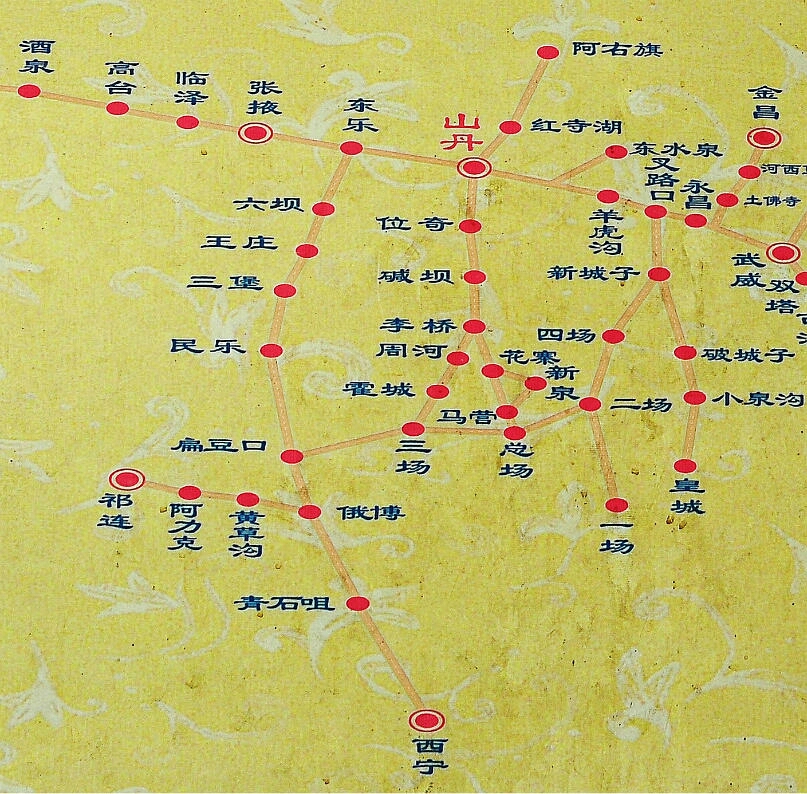 酒泉
高台
临泽
张掖
东乐
山丹
阿右旗
红寺湖
东水泉
金昌
河西
叉路口
永昌
土佛寺
羊虎沟
武威
双塔
六坝
王庄
三堡
民乐
扁豆口
位奇
碱坝
李桥
周河
霍城
花寨
新泉
马营
三场
总场
新城子
四场
二场
一场
破城子
小泉沟
皇城
祁连
阿力克
黄草沟
俄博
青石咀
西宁